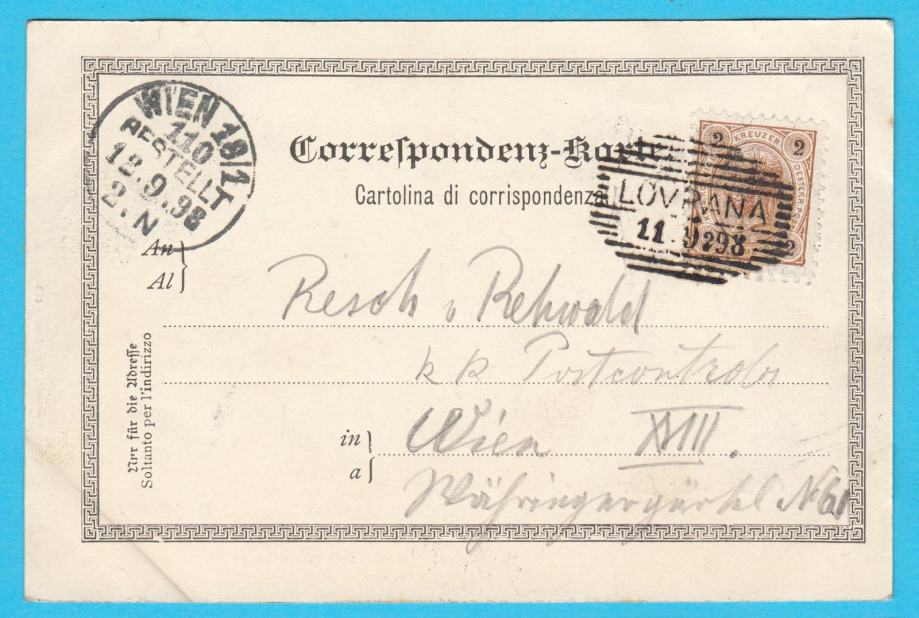 WIEN 18/1
110
BESTELLT
12.9.98
2.N
2 KREUZER 2
2
LOVRANA
11 9 98
Correſpondenz-Karte
Cartolina di corrispondenza
An
Al
Resch v Rehwald
k k Postcontrolor
in Wien XVIII.
a
Währingergürtel No 61
Nur für die Adreſſe
Soltanto per l'indirizzo